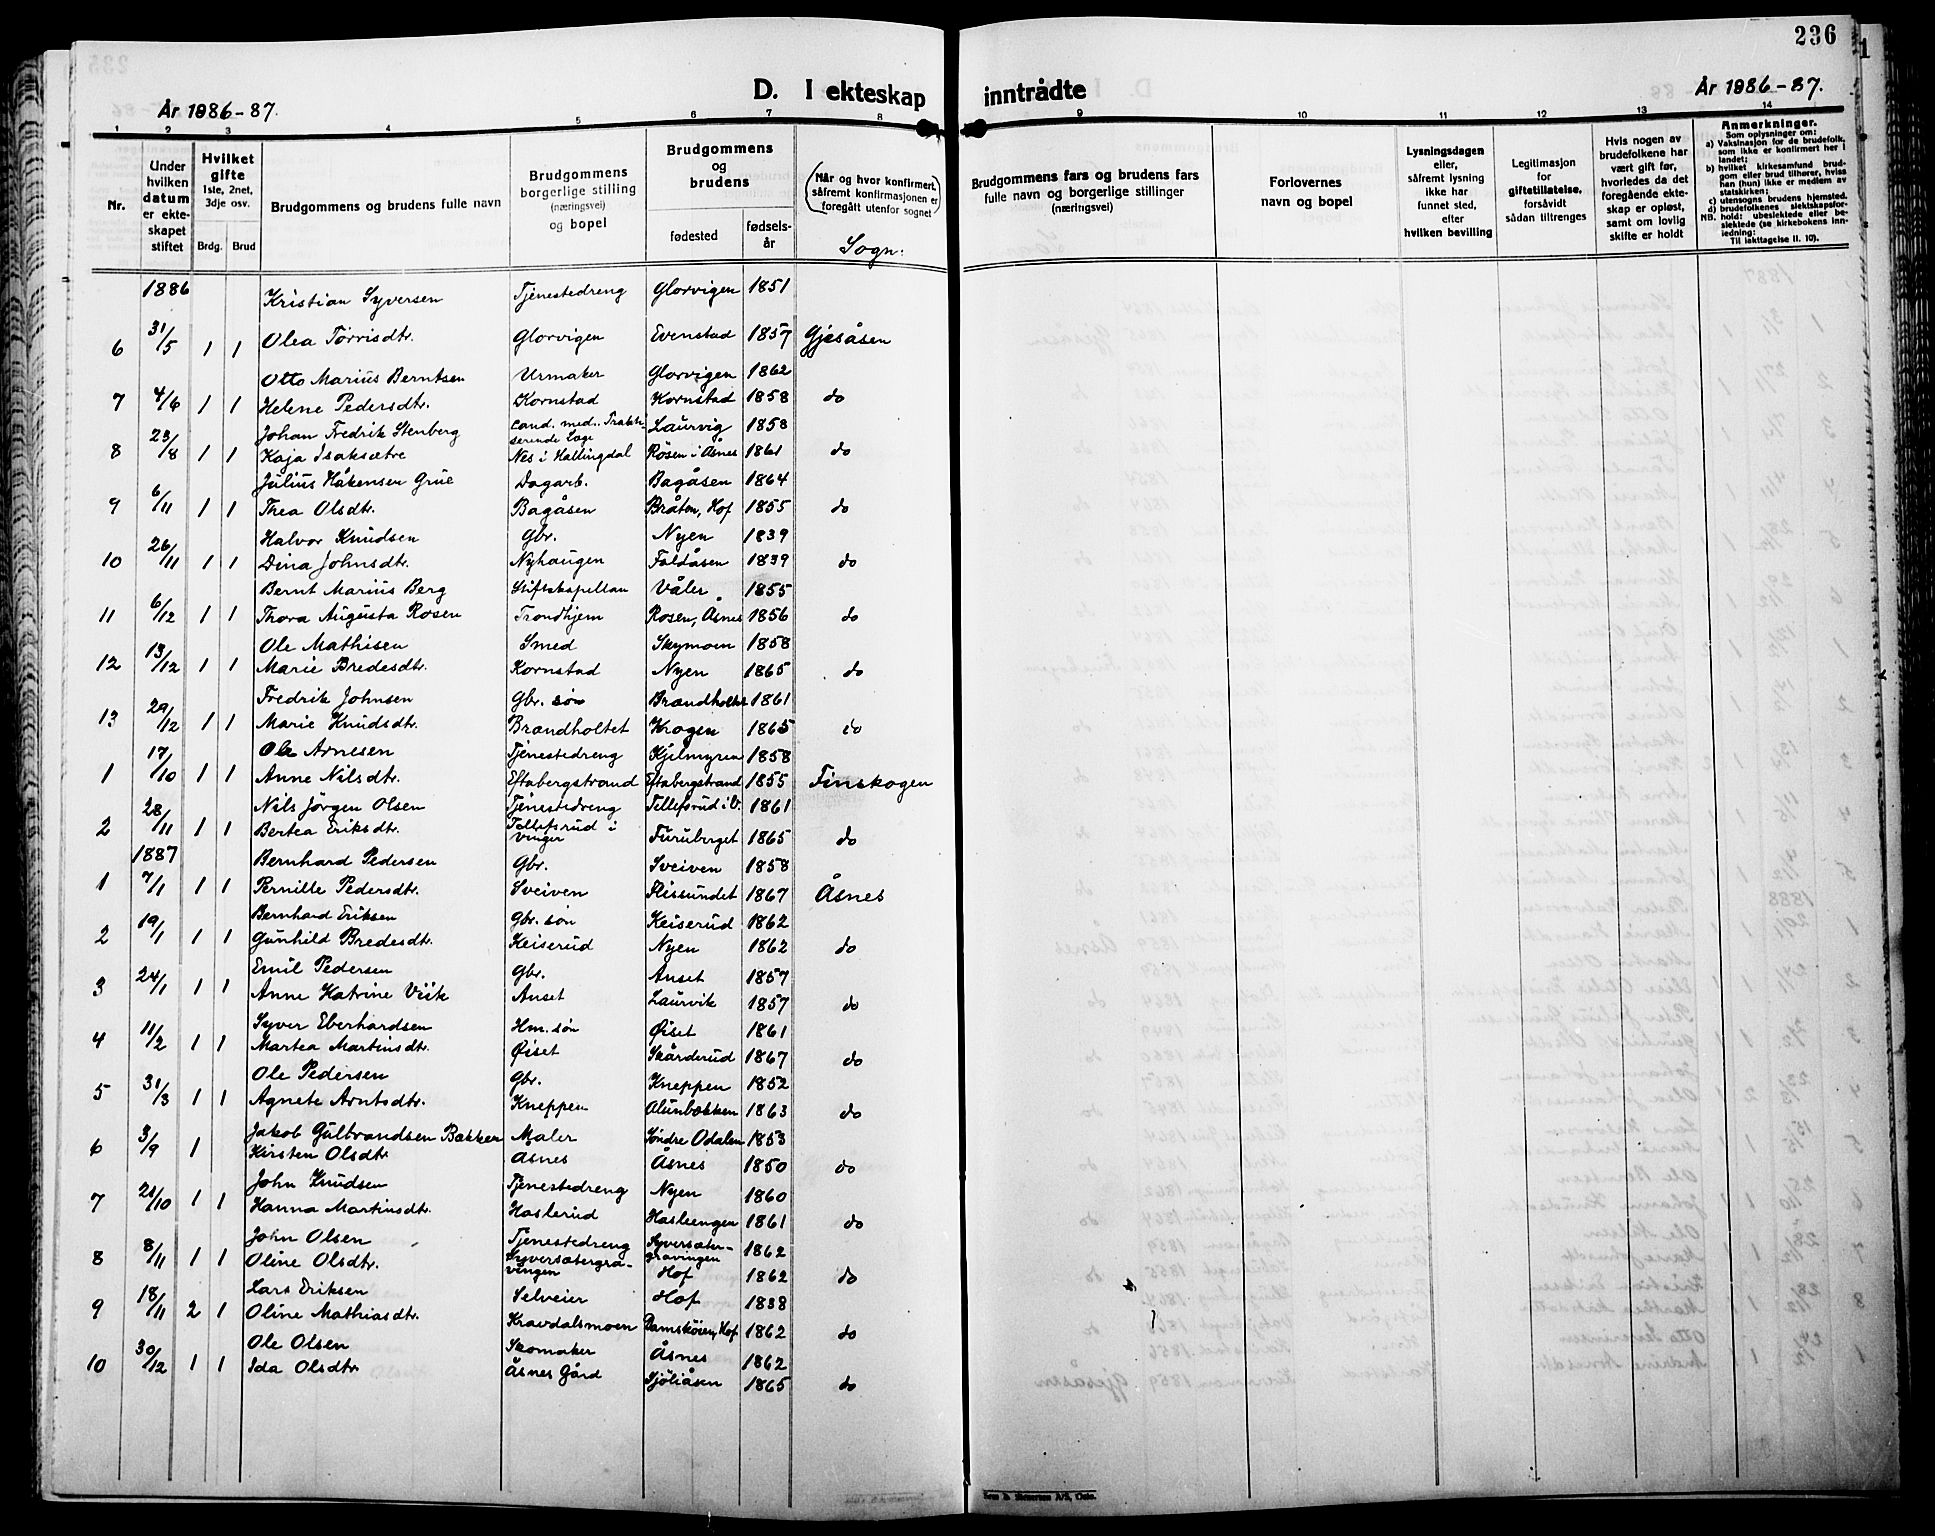 236
D. I ekteskap inntrådte
År 1886-87.
År 1886-87.
1 2 3 4 5 6 7 8 9 10 11 12 13 14
Nr.
Under hvilken datum er ekteskapet stiftet
Hvilket gifte 1ste, 2net, 3dje osv.
Brdg. Brud
Brudgommens og brudens fulle navn
Brudgommens borgerlige stilling (næringsvei) og bopel
Brudgommens og brudens
fødested
fødselsår
(Når og hvor konfirmert, såfremt konfirmasjonen er foregått utenfor sognet)
Sogn:
Brudgommens fars og brudens fars fulle navn og borgerlige stillinger (næringsvei)
Forlovernes navn og bopel
Lysningsdagen eller, såfremt lysning ikke har funnet sted, efter hvilken bevilling
Legitimasjon for giftetillatelse, forsåvidt sådan tiltrenges
Hvis nogen av brudefolkene har vært gift før, hvorledes da det foregående ekteskap er opløst, samt om lovlig skifte er holdt
Anmerkninger.
Som oplysninger om:
a) Vaksinasjon for de brudefolk, som ikke er konfirmert her i landet;
b) hvilket kirkesamfund brudgom eller brud tilhører, hviss han (hun) ikke er medlem av statskirken;
c) utensogns brudens hjemsted.
d) brudefolkenes slektskapsforhold: ubeslektede eller beslektede (se kirkebokens innledning:
NB.
Til iakttagelse II. 10).
1886 Kristian Syversen Tjenestedreng Glorvigen 1851
6 31/5 1 1 Olea Torrisdtr. Glorvigen Evenstad 1857 Gjesåsen
Otto Marius Berntsen Urmaker Glorvigen 1862
7 4/6 1 1 Helene Pedersdtr. Kornstad Kornstad 1858 do
Johan Fredrik Stenberg cand. med. Praktiserende Læge Laurvig 1858
8 23/8 1 1 Kaja Isaksætre Nes i Hallingdal Rösen i Åsnes 1861 do
Julius Håkensen Grue Dagarb. Bagåsen 1864
9 6/11 1 1 Thea Olsdtr. Bagåsen Bråten, Hof 1855 do
Halvor Knudsen Gbr. Nyen 1839
10 26/11 1 1 Dina Johnsdtr. Nyhaugen Faldåsen 1839 do
Bernt Marius Berg Stiftskapellan Våler 1855
11 6/12 1 1 Thora Augusta Rosen Trondhjem Rosen, Åsnes 1856 do
Ole Mathisen Smed Skymoen 1858
12 13/12 1 1 Marie Bredesdtr. Kornstad Nyen 1865 do
Fredrik Johnsen Gbr. søn Brandholtet 1861
13 29/12 1 1 Marie Knudsdtr. Brandholtet Krogen 1865 do
Ole Arnesen Tjenestedreng Kjelmyren 1858
1 17/10 1 1 Anne Nilsdtr. Eftabergstrand Eftabergstrand 1855 Finskogen
Nils Jörgen Olsen Tjenestedreng Tellefsrud i V. 1861
2 28/11 1 1 Bertea Eriksdtr. Tellefsrud i Vinger Furuberget 1865 do
1887 Bernhard Pedersen Gbr. Sveiven 1858
1 7/1 1 1 Pernille Pedersdtr. Sveiven Flissundet 1867 Åsnes
Bernhard Eriksen Gbr. søn Keiserud 1862
2 19/1 1 1 Gunhild Bredesdtr. Keiserud Nyen 1862 do
Emil Pedersen Gbr. Anset 1857
3 24/1 1 1 Anne Katrine Viik Anset Laurvik 1857 do
Syver Eberhardsen Hm. søn Øiset 1861
4 11/2 1 1 Martea Martinsdtr. Øiset Skårderud 1867 do
Ole Pedersen Gbr. Kneppen 1852
5 31/3 1 1 Agnete Arntsdtr. Kneppen Alunbækken 1863 do
Jakob Gulbrandsen Bækker Maler Søndre Odalen 1853
6 3/9 1 Kirsten Olsdtr. Åsnes Åsnes 1850 do
John Knudsen Tjenestedreng Nyen 1860
7 21/10 1 1 Hanna Martinsdtr. Haslerud Hasleengen 1861 do
John Olsen Tjenestedreng Syversætergravingen 1862
8 8/11 1 1 Oline Olsdtr. Syversætergravingen Hof 1862 do
Lars Eriksen Selveier Hof 1838
9 18/11 2 1 Oline Mathiasdtr. Kravdalsmoen Damskøien, Hof 1862 do
Ole Olsen Skomaker Åsnes 1862
10 30/12 1 1 Ida Olsdtr Åsnes Gård Sjöliåsen 1865 do